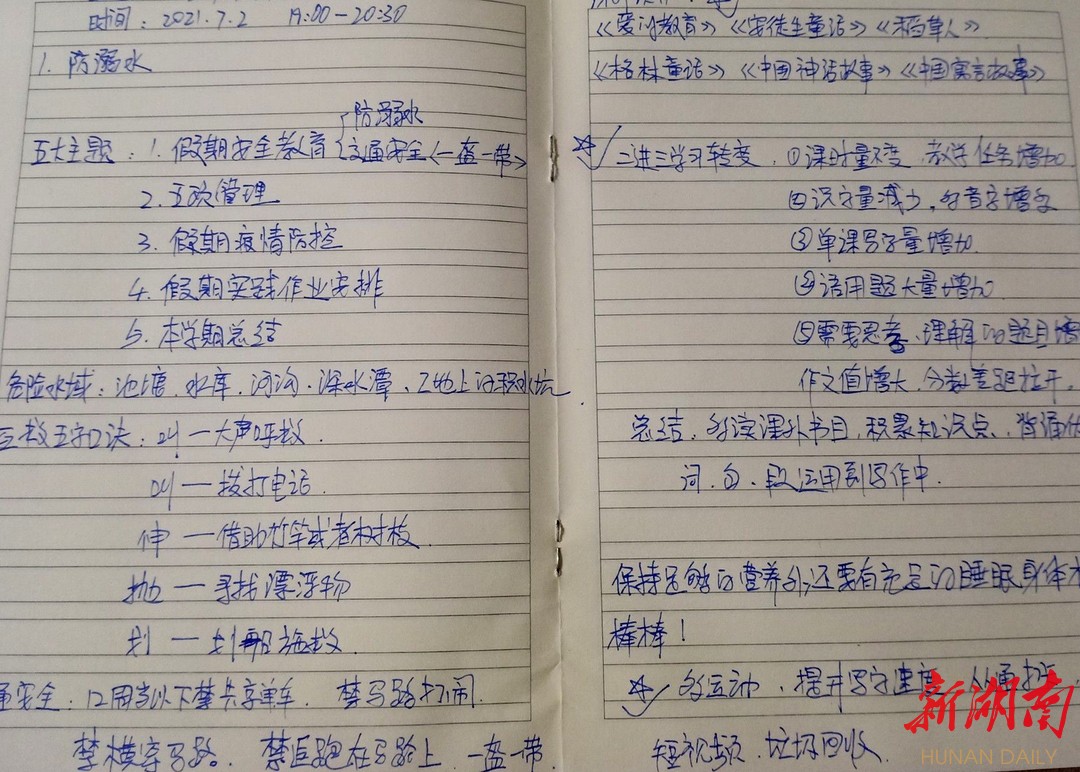 时间：2021.7.2 19:00-20:30
1. 防溺水
防溺水
五大主题：1. 假期安全教育 交通安全<一盔一带>
2. 五项管理
3. 假期疫情防控
4. 假期实践作业安排
5. 本学期总结
危险水域：池塘、水库、河沟、深水潭、工地上的积水坑
互救五字口诀：叫一大声呼救.
叫一拨打电话.
伸一借助竹竿或者树枝.
抛一寻找漂浮物
划一划船施救.
通安全：12周岁以下禁共享单车 禁马路打闹.
禁横穿马路。 禁追跑在马路上 一盔一带.
《爱的教育》《安徒生童话》《稻草人》.
《格林童话》《中国神话故事》《中国寓言故事》
二进三学习转变. ①课时量不变 教学任务增加
②识字量减少，多音字增多
③单课写字量增加.
④语用题大量增加
⑤需要思考、理解的题目增
作文值增大，分数差距拉开.
总结，多读课外书目，积累知识点、背诵优
词、句、段运用到写作中.
保持足够的营养外，还要有充足的睡眠身体才
棒棒！
多运动、提升写字速度、
短视频、垃圾回收
新湖南
HUNAN DAILY